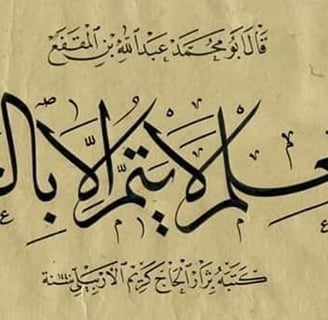 قَالَ ابُو مُحَمَّد عَبْدُ اللّٰهِ بْنِ الْمُقَفَّعْ
علم لا يتمّ الّا بال
كَتَبَهُ بِزَار الحَاج كَرِيْم الاَرْبِيْلِي سَنَة ١٤٤٠